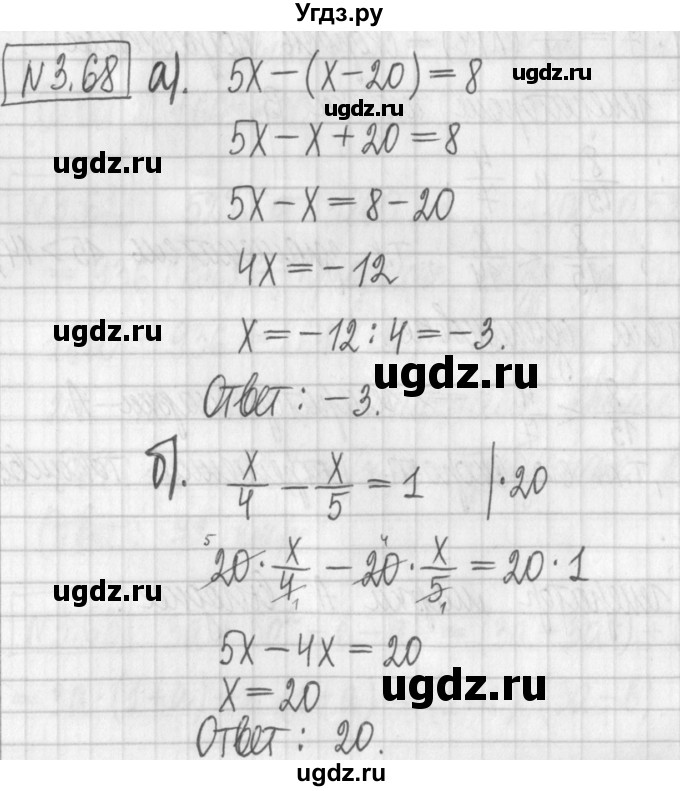 Угдз.ру
N3.68 а). 5x-(x-20)=8 ugdz.ru
ugdz.ru
5x-x+20=8
ugdz.ru
5x-x=8-20
4x=-12
ugdz.ru x=-12:4=-3.
ugdz.ru
Ответ: -3.
б). x/4 - x/5 = 1 |·20
5 4
20·x/4 - 20·x/5 = 20·1
1 1
ugdz.ru
5x-4x=20
x=20 ugdz.ru
Ответ: 20.
ugdz.ru